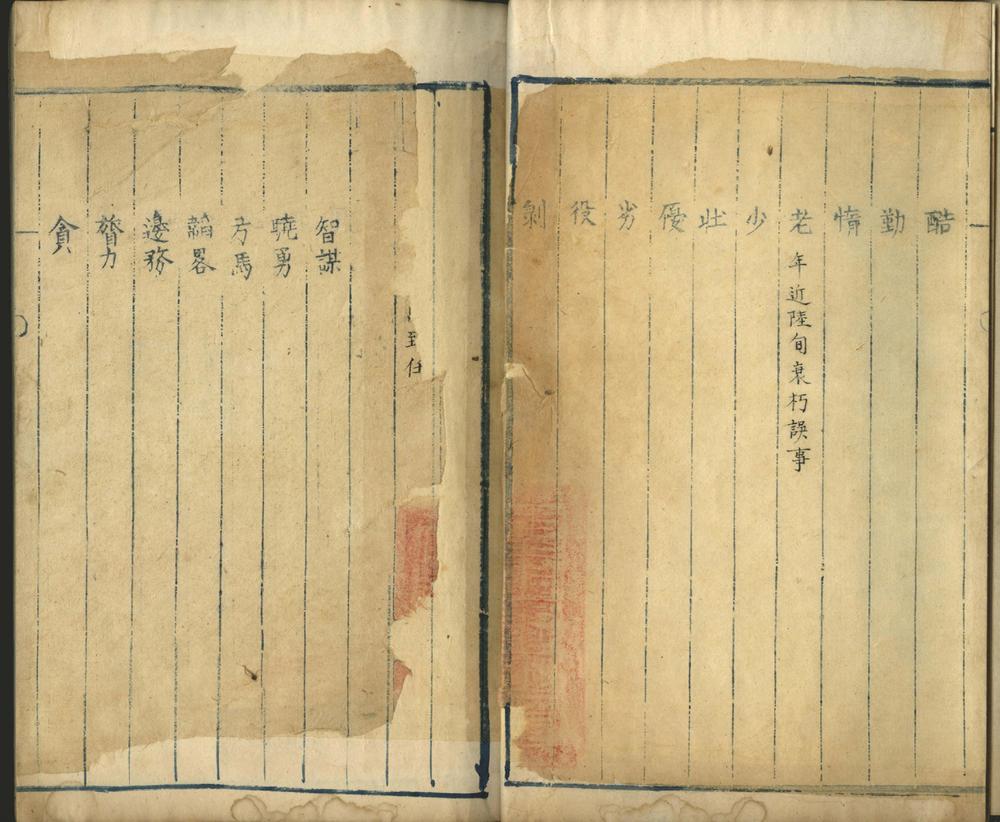 酷
勤
惰
老 年近陸旬衰朽誤事
少
壯
優
劣
役
剝
到任
智謀
驍勇
弓馬
韜畧
邊務
膂力
貪